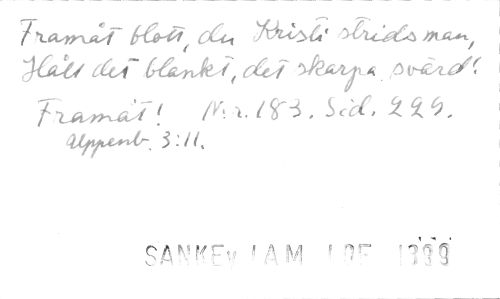 Framåt blott, du Kristi stridsman,
Håll det blankt, det skarpa svärd!
Framåt! N:r. 183. Sid. 229.
Uppenb. 3:11.
SANKEY